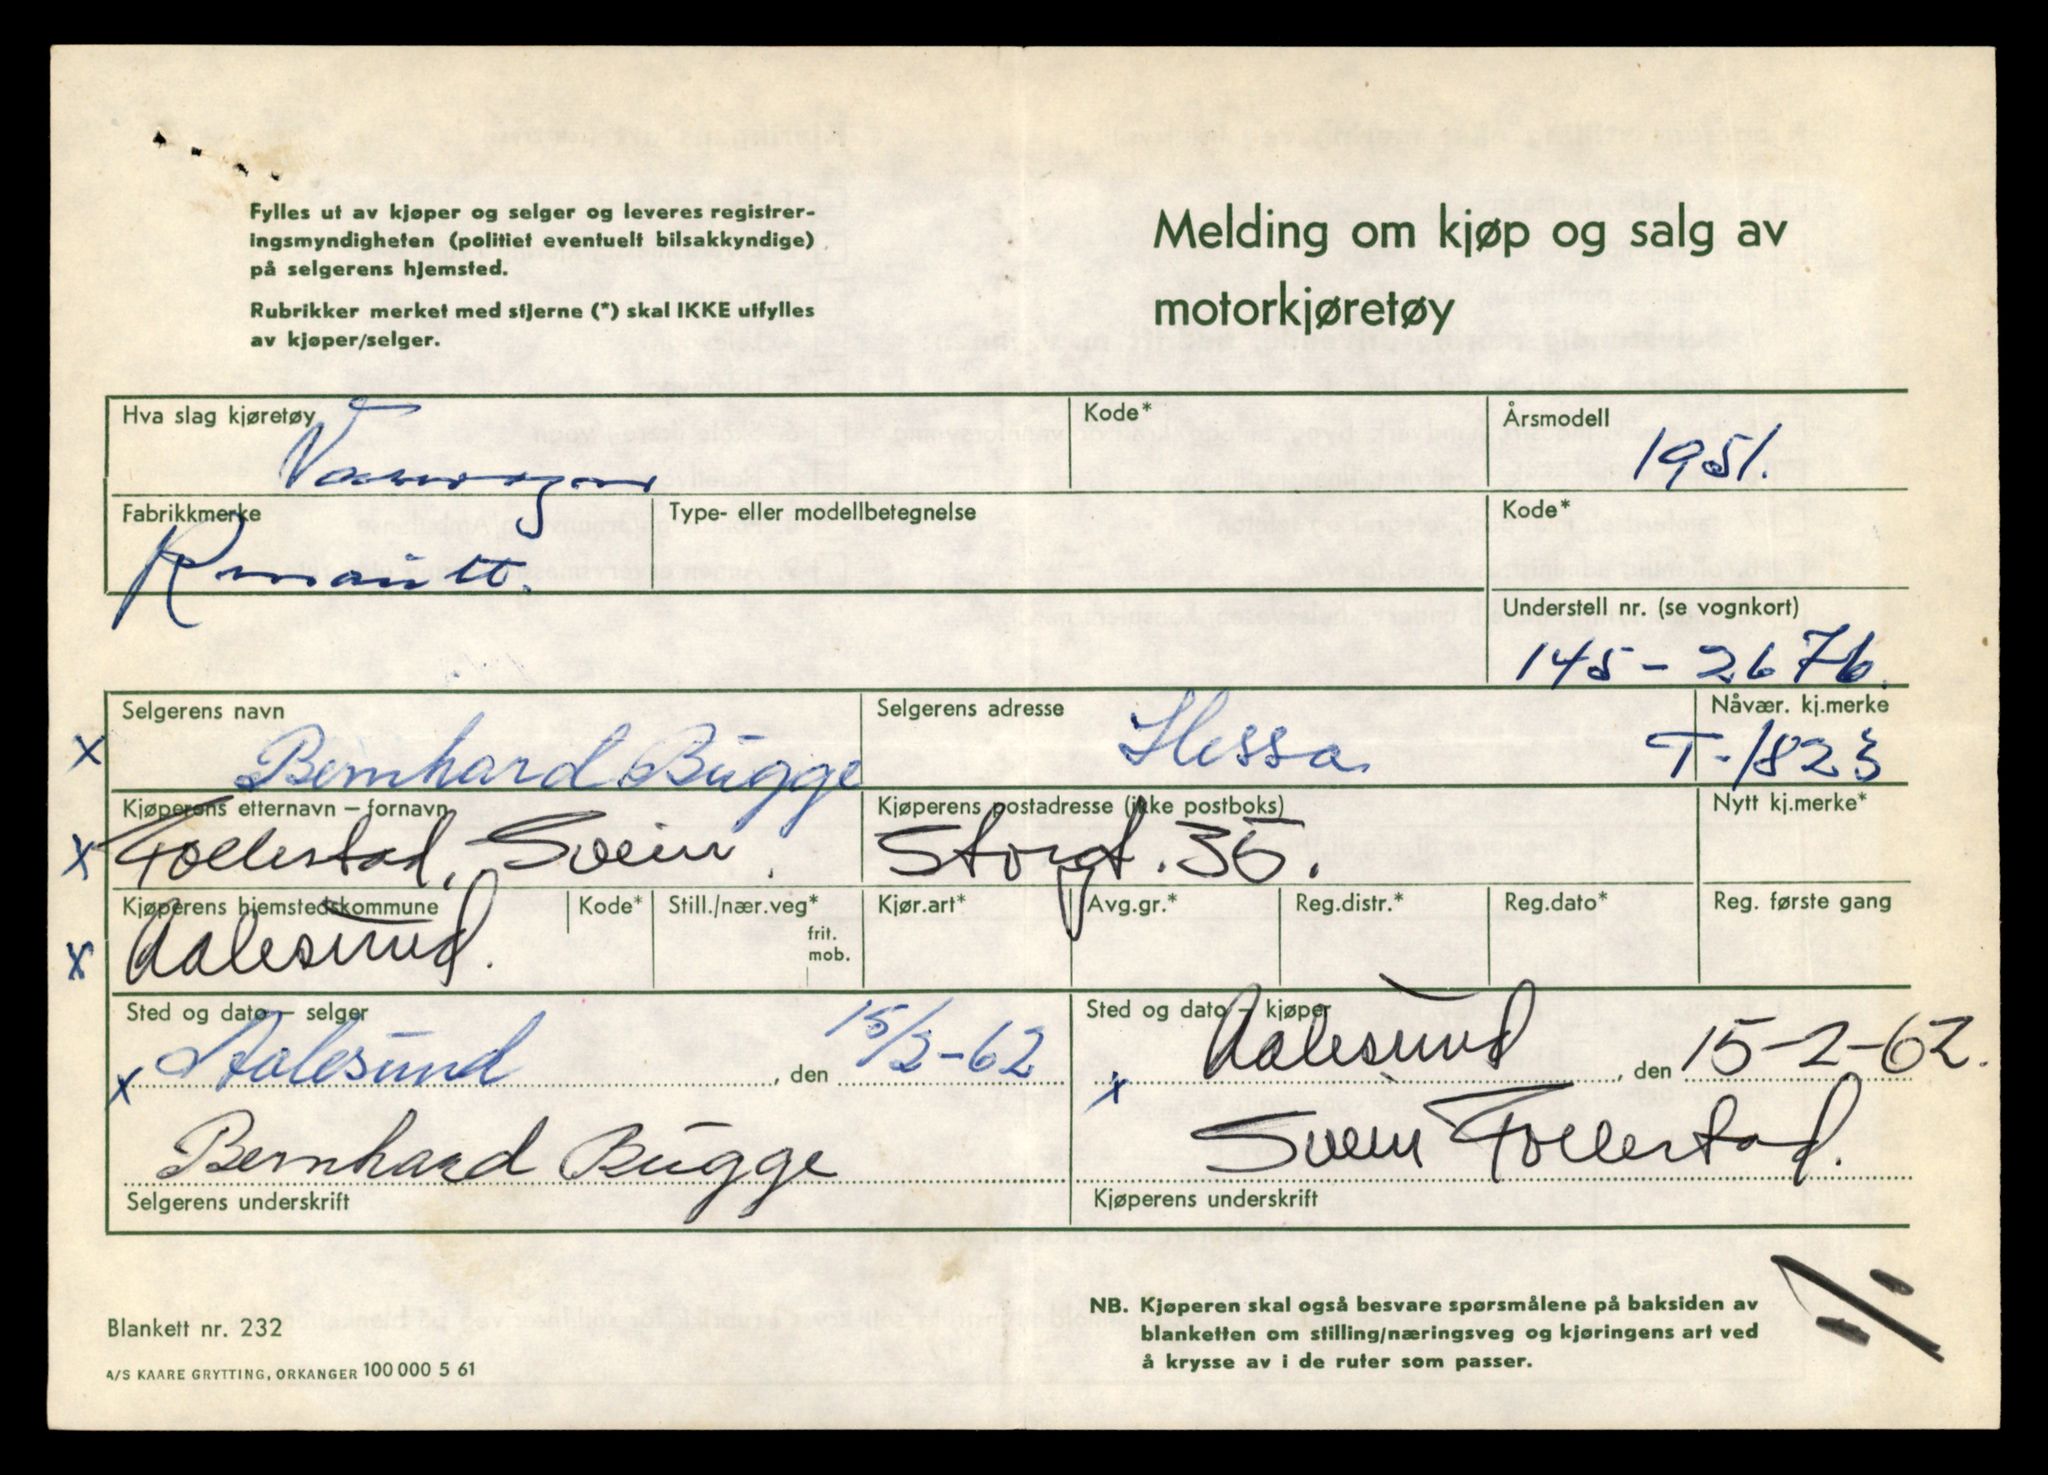 Fylles ut av kjøper og selger og leveres registrer-
ingsmyndigheten (politiet eventuelt bilsakkyndige)
på selgerens hjemsted.
Rubrikker merket med stjerne (*) skal IKKE utfylles
av kjøper/selger.
Melding om kjøp og salg av
motorkjøretøy
Hva slag kjøretøy
Varevogn
Kode*
Årsmodell
1951.
Fabrikkmerke
Type- eller modellbetegnelse
Kode*
Understell nr. (se vognkort)
145-2676.
x
Selgerens navn
Bernhard Bugge
Selgerens adresse
Hessa
Nåvær. kj.merke
T-1823
x
Kjøperens etternavn – fornavn
Follestad, Svein.
Kjøperens postadresse (ikke postboks)
Storgt. 35.
Nytt kj.merke*
x
Kjøperens hjemstedskommune
Aalesund.
Kode*
Still./nær.veg*
frit.
mob.
Kjør.art*
Avg.gr.*
Reg.distr.*
Reg.dato*
Reg. første gang
Sted og dato – selger
x Aalesund, den 15/2-62
Bernhard Bugge
Selgerens underskrift
Sted og dato – kjøper
x Aalesund, den 15-2-62.
Svein Follestad.
Kjøperens underskrift
Blankett nr. 232
A/S KAARE GRYTTING, ORKANGER 100 000 5 61
NB. Kjøperen skal også besvare spørsmålene på baksiden av
blanketten om stilling/næringsveg og kjøringens art ved
å krysse av i de ruter som passer.